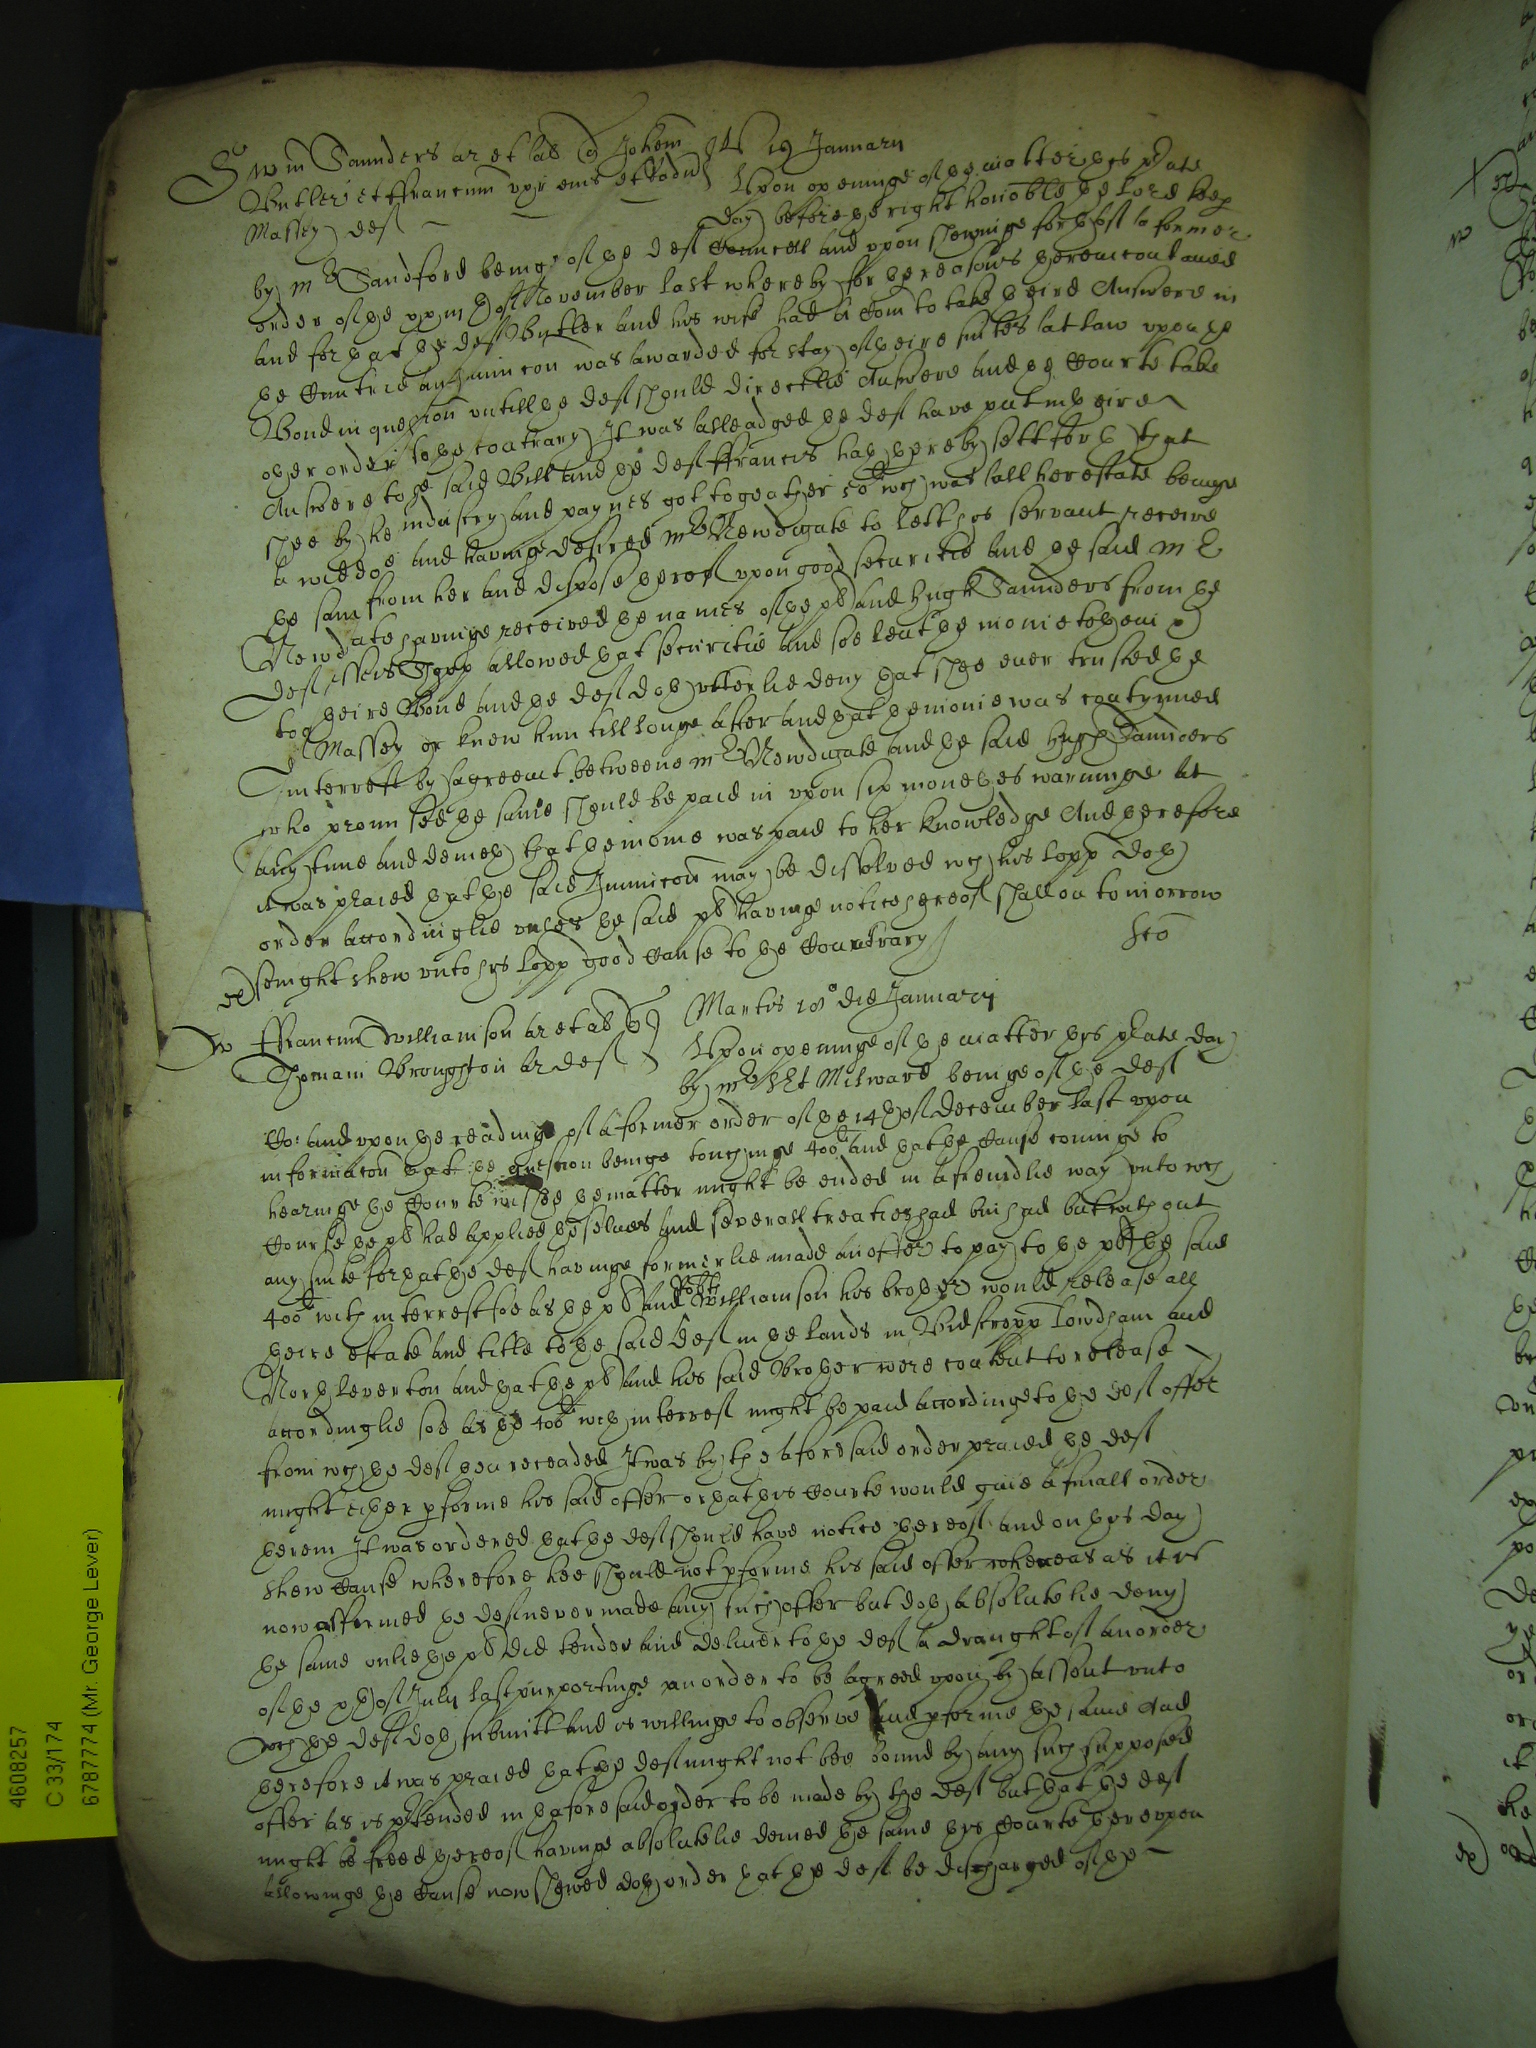 S Wm Saunders ar et al q Johem
Butler et ffrancum vxor eius et Todm
Massey def
19 Januarij
Vpon openinge of ye matter ys pnte
day before ye right honoble ye lord keep
by mr Sandford beinge of ye def councell and vpon shewinge forth of a former
order of ye of November last whereby for ye reasons yerein contained
and for yat ye def Butler and his wife had a Com to take yeire Answere in
ye Countrie an Iniuncon was awarded for stay of yeire suites att law vpon ye
Bond in question vntill ye def should directlie Answere and ye Courte take
oyer order to ye contrary It was alleadged ye def have put in yeire
Answere to ye said Bill and ye def ffrancis hath yereby sett forth that
shee by he industry and paynes got togeather 50li wch was all her estate beinge
a widdoe and having desired mr Newdigate to lett his servant receive
ye same from her and dispose yereof vpon good securitie and ye said mr
Newdgate havinge received ye names of ye pl and Hugh Saunders from ye
def Massey allowed yat securitie and soe lent ye monie to yem
too yeire Bond and ye def doth vtterlie deny yat shee ever trusted ye
Massey or knew him till longe after and yat ye monie was contynued
interrest by agreemt betweene mr Newdigate and ye said Hugh Saunders
who promised ye same should be paid in vpon six moneths warninge at
any time and denieth that ye monie was paid to her knowledge And yerefore
it was praied yat ye said Iniuncon may be dissolved wch his Lopp doth
order accordinglie vnles ye said pl havinge notice hereof shall on to morrow
senight shew vnto his Lopp good Cause to ye Countrary
ffrancum Williamson ar et al q
Thomam Broughton ar def
Martis 10o die Januarij
Vpon openinge of ye matter ys pnte day
by mr Milward beinge of ye def
Co: and vpon ye readinge of a former order of ye 14th of December last vpon
informacon yat ye question beinge touchinge 400li and yat ye Cause cominge to
hearinge ye Courte wished ye matter might be ended in a freindlie way vnto wch
Course ye pl had applied yeselves and severall treaties had bin had but without
any fruite for yat ye def havinge formerlie made an offer to pay to ye pl ye said
400li with interrest soe as ye pl and Robt Williamson his broyer would release all
yeire estate and title to ye said def in ye lands in Bulstropp Lowdham and
North leverton and yat ye pl and his said Broyer were content to release
accordinglie soe as ye 400li wch interrest might be paid accordinge to ye def offer
from wch ye def yen receaded It was by the aforesaid order praied ye def
might eiyer pforme his said offer or yat ys Courte would give a finall order
yerein It was ordered yat ye def should have notice yereof and on ys day
shew Cause wherefore hee should not pforme his said offer whereas as it is
now affirmed ye def never made any such offer but doth absolutelie deny
ye same onlie ye pl did tender and deliver to ye def a draught of an order
of ye of July last purportinge an order to be agreed vpon by assent vnto
wch ye def doth submitt and is willinge to observe and pforme ye same And
yerefore it was praied yat ye def might not bee bound by any such supposed
offer as is ptended in yaforesaid order to be made by the def but yat ye def
might be freed yereof havinge absolutelie denied ye same ys Courte yerevpon
allowinge ye Cause now shewed doth order yat ye def be discharged of ye
4608257
C 33/174
6787774 (Mr. George Lever)